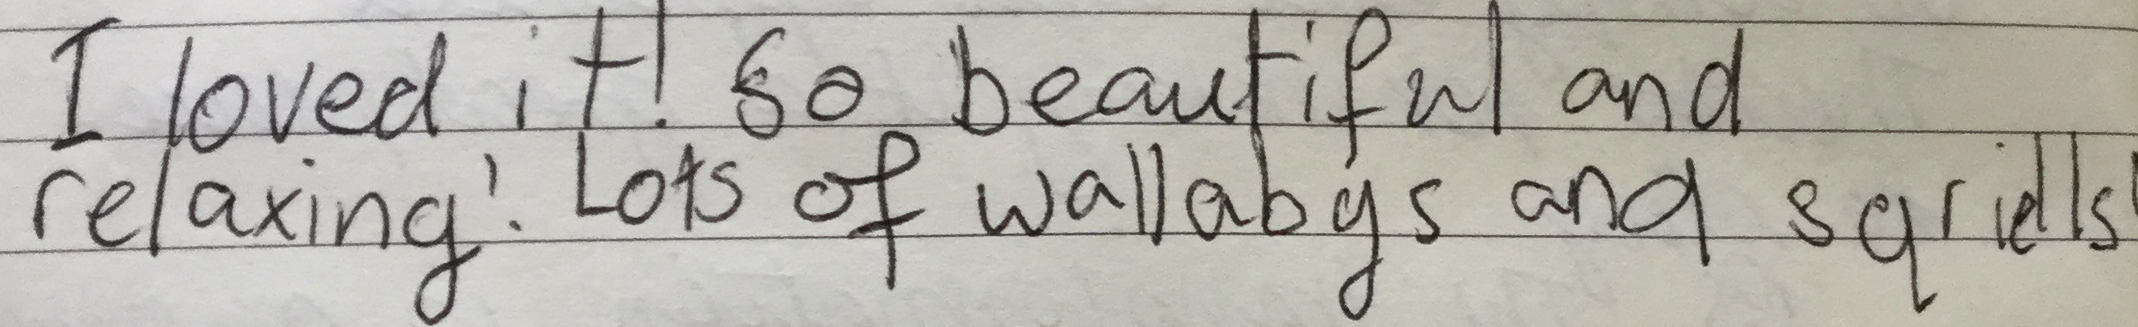 I loved it! So beautiful and
relaxing! Lots of wallabys and sqriells!